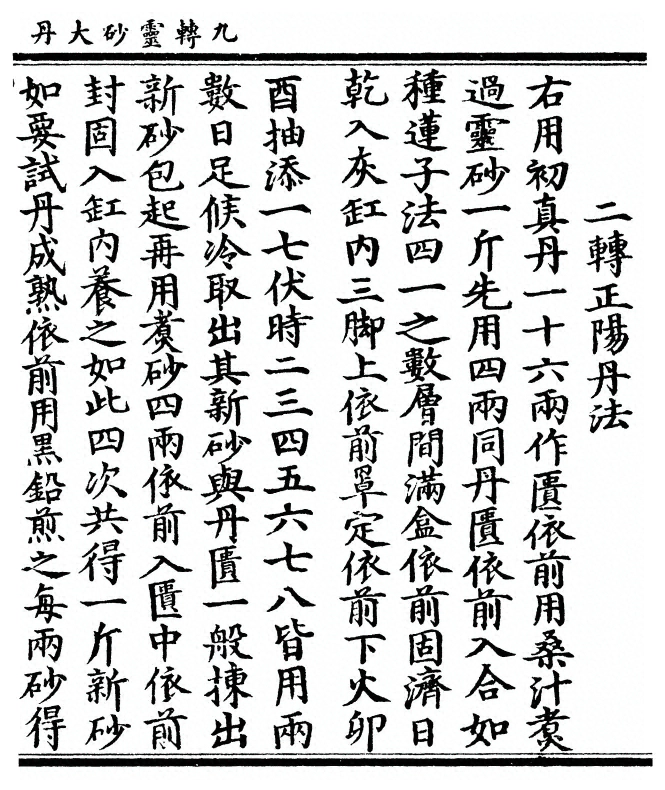 九轉靈砂大丹
二轉正陽丹法
右用初真丹一十六兩作匱依前用桑汁煑
過靈砂一斤先用四兩同丹匱依前入合如
種蓮子法四一之數層間滿盒依前固濟日
乾入灰缸內三脚上依前罩定依前下火卯
酉抽添一七伏時二三四五六七八皆用兩
數日足候冷取出其新砂與丹匱一般揀出
新砂包起再用煑砂四兩依前入匱中依前
封固入缸內養之如此四次共得一斤新砂
如要試丹成熟依前用黑鉛煎之每兩砂得